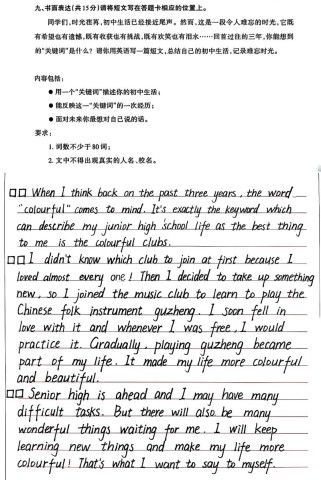 九、书面表达(共15分)请将短文写在答题卡相应的位置上。
同学们,时光荏苒,初中生活已经接近尾声。然而,这是一段令人难忘的时光,它既
有希望也有遗憾,既有收获也有挑战,既有欢笑也有泪水……回首过往的三年,你能想到
的“关键词”是什么?请你用英语写一篇短文,总结自己的初中生活,记录难忘时光。
内容包括:
● 用一个“关键词”描述你的初中生活;
● 能反映这一“关键词”的一次经历;
● 面对未来你最想对自己说的话。
要求:
1. 词数不少于80词;
2. 文中不得出现真实的人名、校名。
□□ When I think back on the past three years, the word
"colourful" comes to mind. It's exactly the keyword which
can describe my junior high school life as the best thing
to me is the colourful clubs.
□□ I didn't know which club to join at first because I
loved almost every one! Then I decided to take up something
new, so I joined the music club to learn to play the
Chinese folk instrument guzheng. I soon fell in
love with it and whenever I was free, I would
practice it. Gradually, playing guzheng became
part of my life. It made my life more colourful
and beautiful.
□□ Senior high is ahead and I may have many
difficult tasks. But there will also be many
wonderful things waiting for me. I will keep
learning new things and make my life more
colourful! That's what I want to say to myself.